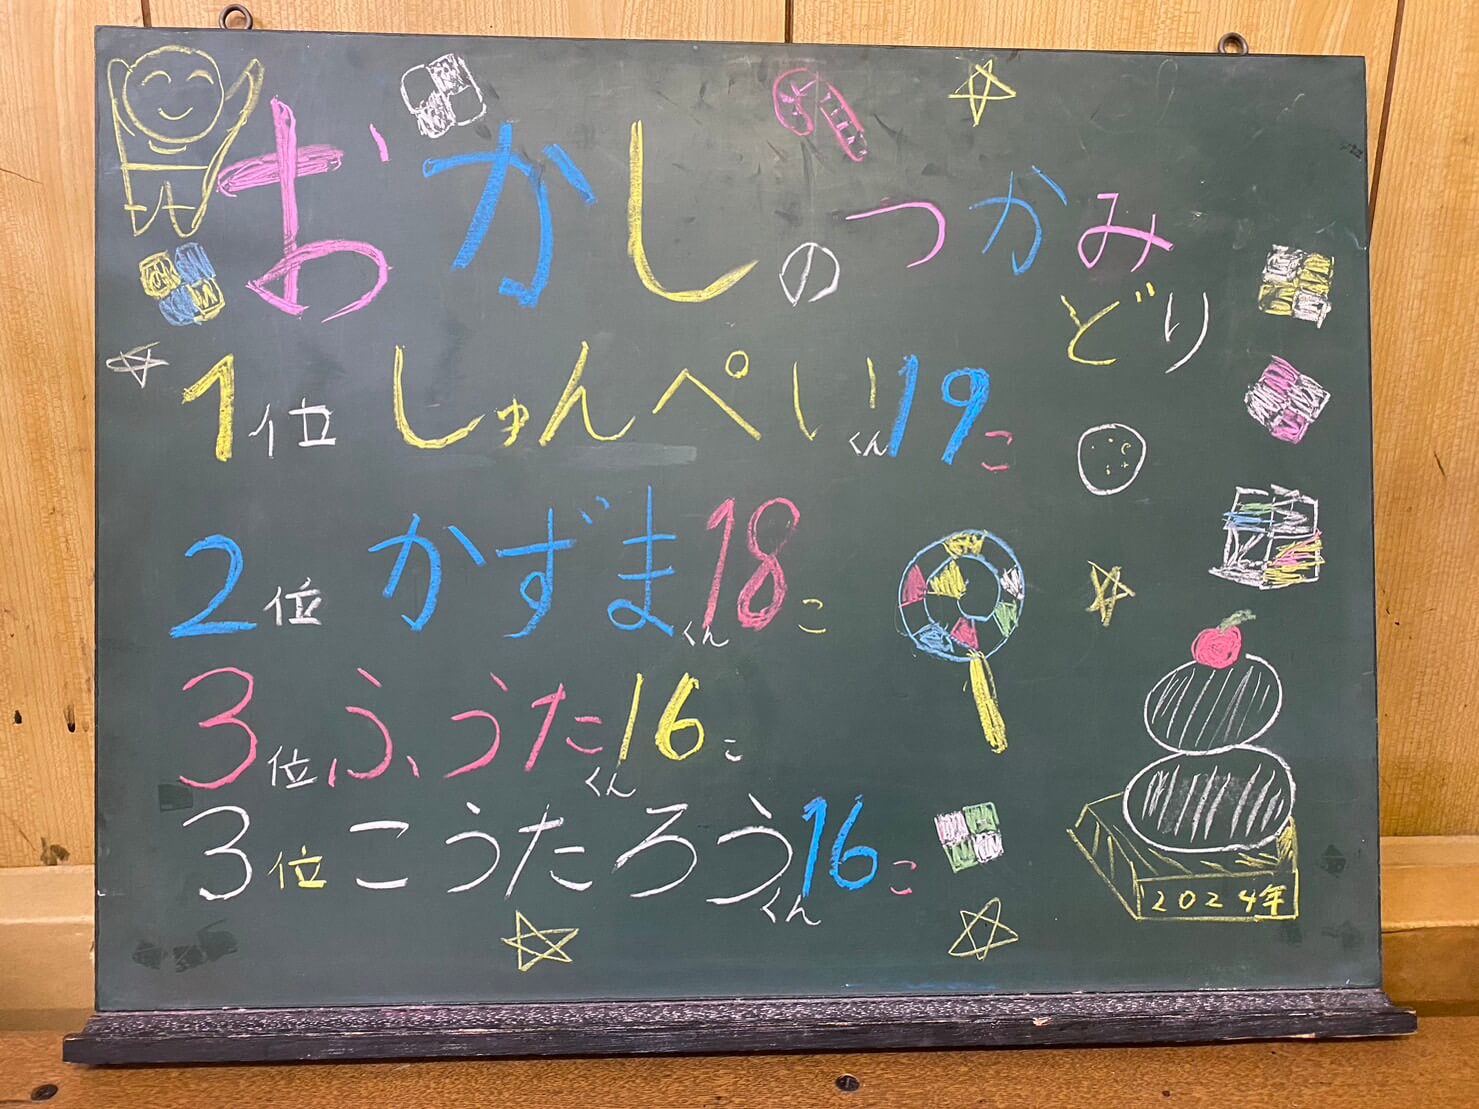 おかしのつかみ
どり
1位 しゅんぺいくん19こ
2位 かずまくん18こ
3位ふうたくん16こ
3位こうたろうくん16こ
2024年